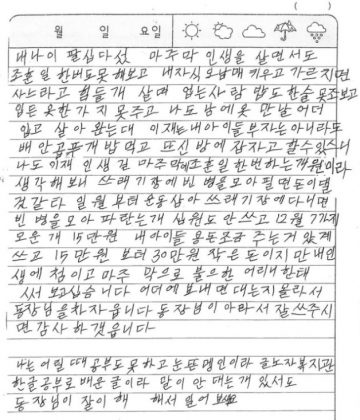 월 일 요일
내나이 팔십다섯 마주막 인생을 살면서도
조훈일 한버도못해보고 내자식 오남매 키우고 가르치면
사느라고 힘들게 살때 업는사람 밥도 한술 못조보고
입든옷한가지 못주고 나도 남에옷 만날 어더
입고 살아왔는대 이재는 내아이들 부자는아니라도
배안곱푸개 밥먹고 뜨신 방에 잠자고 할수있스니
나도 이재 인생길 마주막에 조훈일 한번하는개 원이라
생각해보니 쓰래기장에 빈 병을모아 필면돈이델
것갇타 일월 부터 운동삼아 쓰래기장에다니면
빈 병을모아 파란는개 십원도 안쓰고 12월 7가지
모은개 15만원 내아이들 용돈조금 주는거 았게
쓰고 15만원 보터 30만원 작은 돈이지만 내인
생에 첨이고 마주 막으로 불으한 어리내한태
써 보고십습니다 어더에 보내면 대는지몰라서
동장님을 차자 읍니다 동장님이 아라서 잘쓰주시
면 감사하갯읍니다
나는 어릴 때 공부도못하고 눈뜬 멩인이라 글노자복지관
한글공부로배운 글이라 말이 안대는개 있서도
동장님이 잘이해 해서 일어보새요